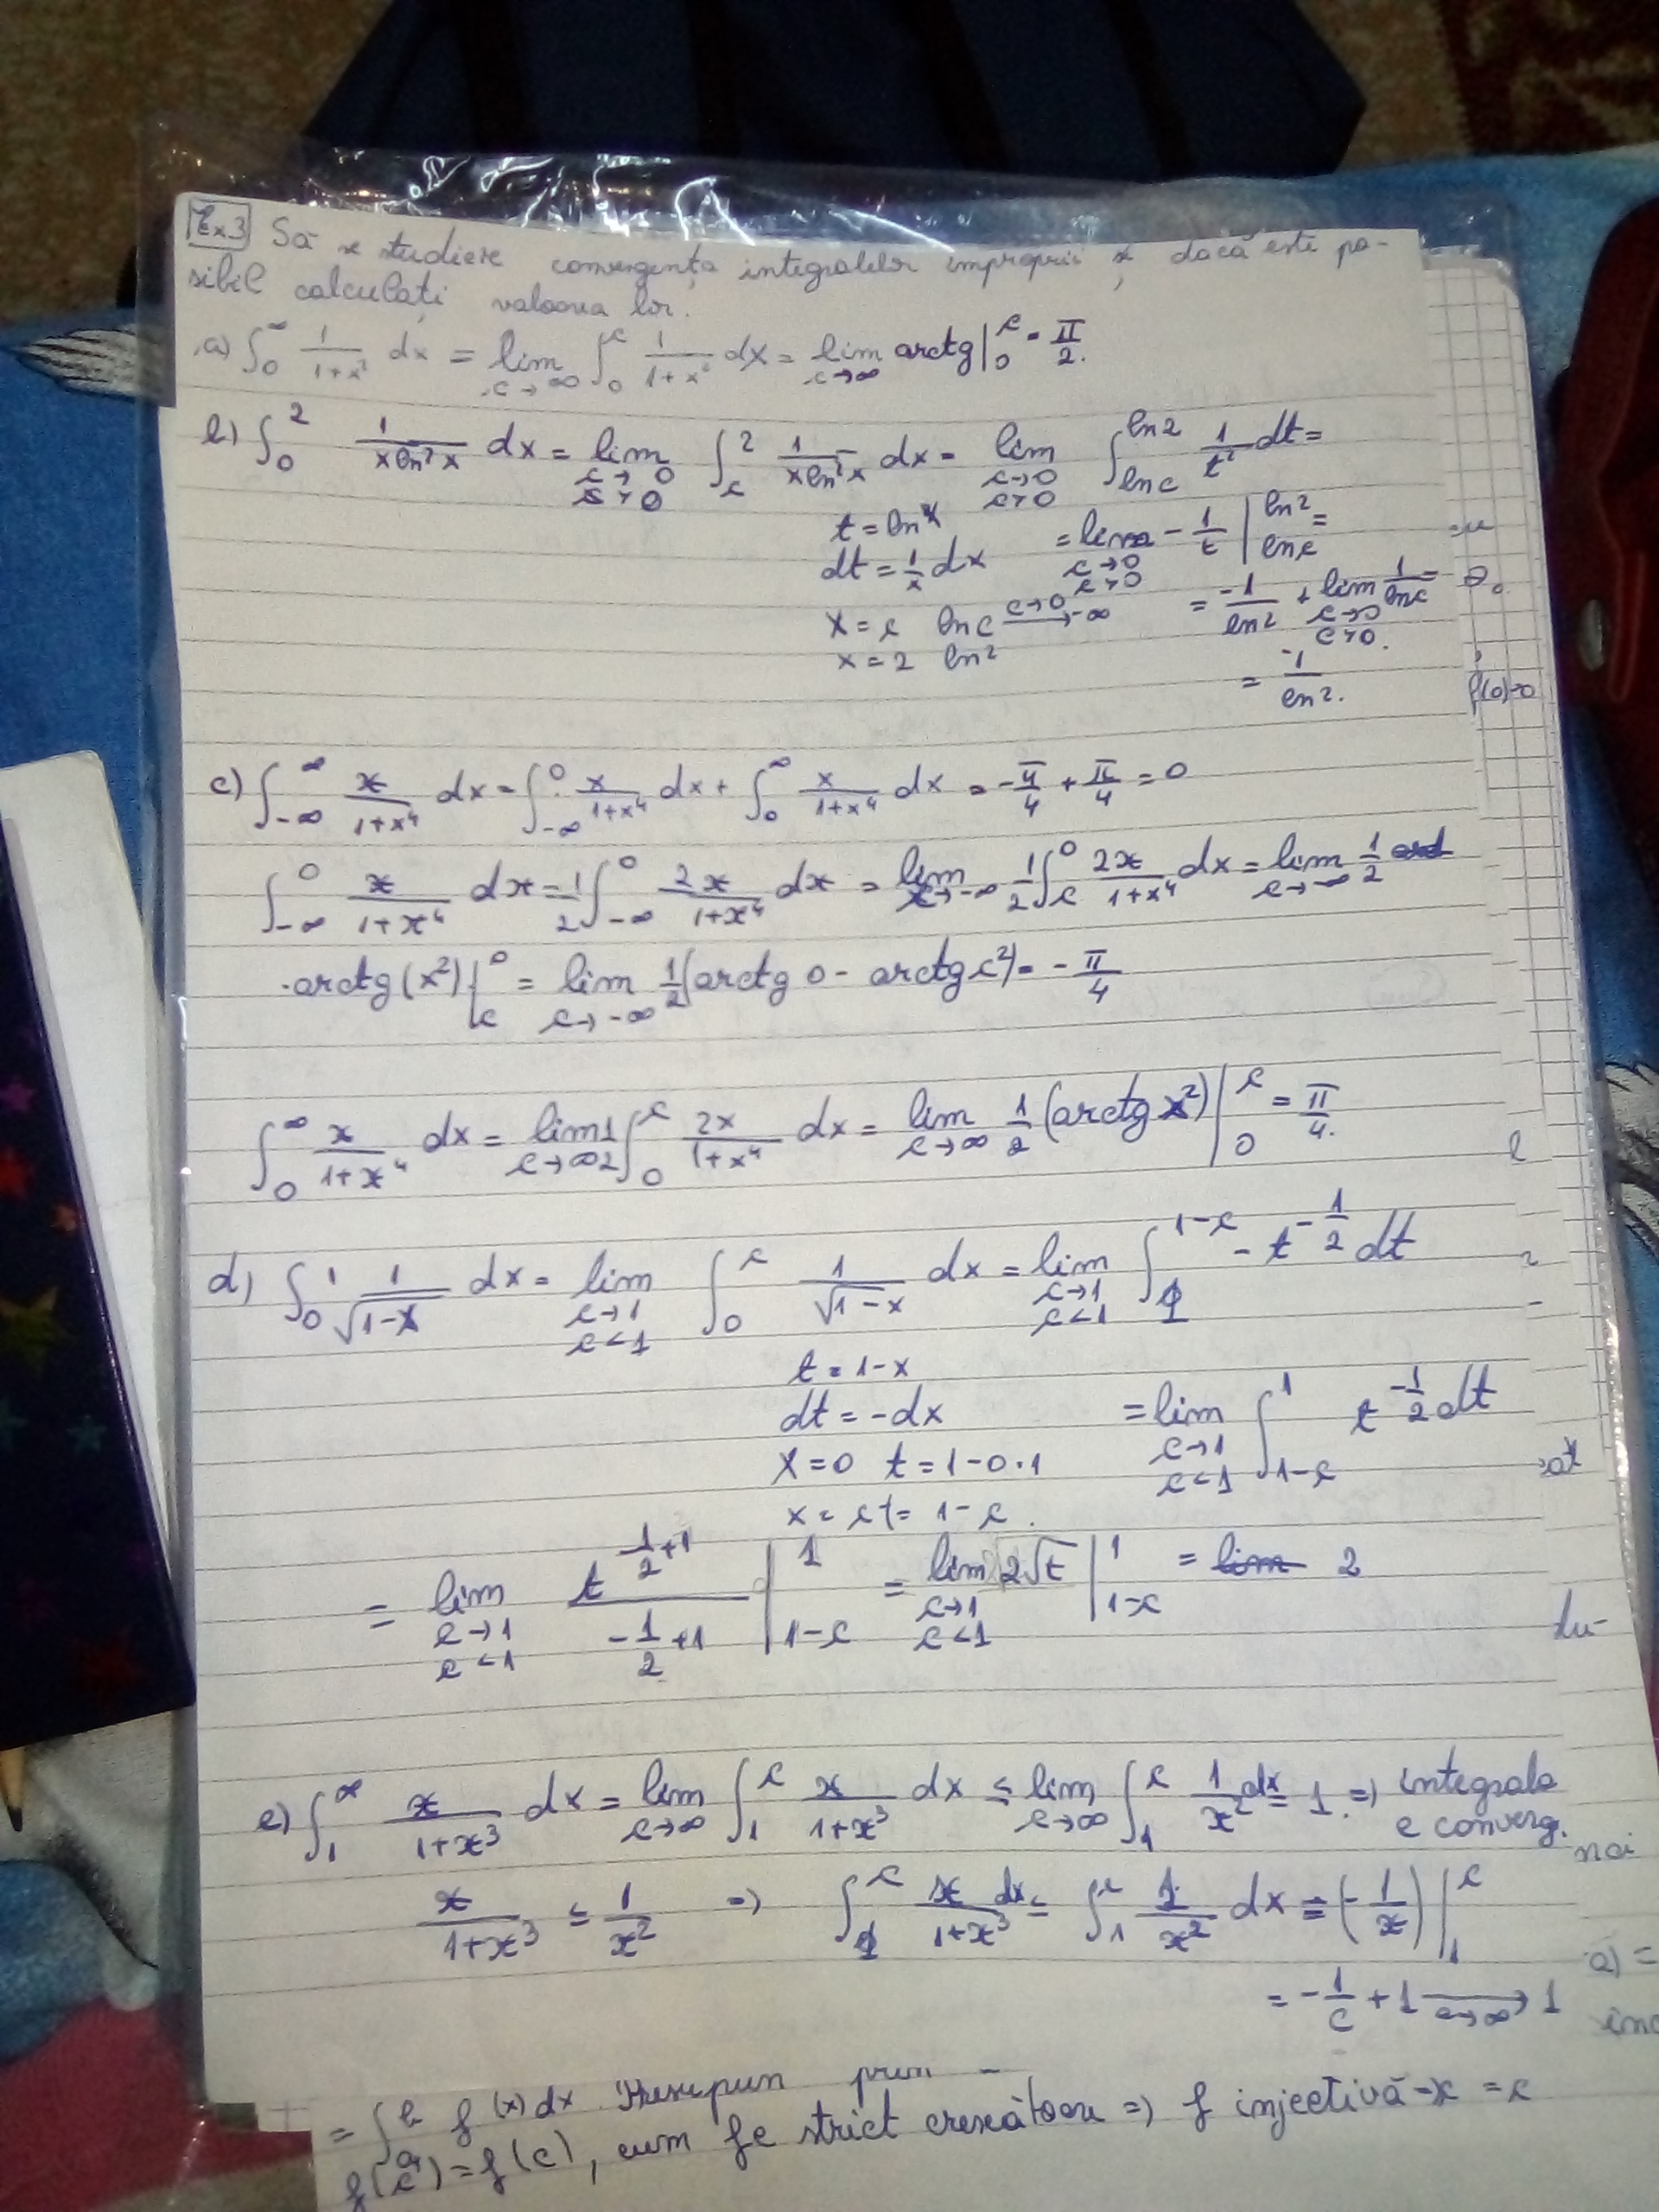 Ex 3 Să se studieze convergența integralelor improprii și dacă este po-
sibil calculați valoarea lor.
a) ∫₀^∞ 1/(1+x²) dx = lim_{c→∞} ∫₀^c 1/(1+x²) dx = lim_{c→∞} arctg |₀^c = π/2.
b) ∫₀² 1/(x ln²x) dx = lim_{c→0, c>0} ∫_c² 1/(x ln²x) dx = lim_{c→0, c>0} ∫_{ln c}^{ln 2} 1/t² dt =
t = ln x
= lim_{c→0, c>0} - 1/t |_{ln c}^{ln 2} =
dt = 1/x dx
x = c ln c →^{c→0} -∞
= -1/ln 2 + lim_{c→0, c>0.} 1/ln c =
x = 2 ln 2
= -1/ln 2.
f(0)=0
c) ∫_{-∞}^∞ x/(1+x⁴) dx = ∫_{-∞}^0 x/(1+x⁴) dx + ∫₀^∞ x/(1+x⁴) dx = -π/4 + π/4 = 0
∫_{-∞}^0 x/(1+x⁴) dx = 1/2 ∫_{-∞}^0 2x/(1+x⁴) dx = lim_{c→-∞} 1/2 ∫_c^0 2x/(1+x⁴) dx = lim_{c→-∞} 1/2
·arctg(x²)|_c^0 = lim_{c→-∞} 1/2 (arctg 0 - arctg c²) = - π/4
∫₀^∞ x/(1+x⁴) dx = lim_{c→∞} 1/2 ∫₀^c 2x/(1+x⁴) dx = lim_{c→∞} 1/2 (arctg x²)|₀^c = π/4.
d) ∫₀¹ 1/√(1-x) dx = lim_{c→1, c<1} ∫₀^c 1/√(1-x) dx = lim_{c→1, c<1} ∫_1^{1-c} - t^{-1/2} dt
t = 1-x
dt = -dx
= lim_{c→1, c<1} ∫_{1-c}^1 t^{-1/2} dt
x=0 t = 1-0·1
x = c t = 1-c.
= lim_{c→1, c<1} t^{-1/2+1}/(-1/2+1) |_{1-c}^1 = lim_{c→1, c<1} 2√t |_{1-c}^1 = lim 2
e) ∫₁^∞ x/(1+x³) dx = lim_{c→∞} ∫₁^c x/(1+x³) dx ≤ lim_{c→∞} ∫₁^c 1/x² dx = 1. ⇒ integrala
e converg.
x/(1+x³) ≤ 1/x² ⇒ ∫₁^c x dx/(1+x³) ≤ ∫₁^c 1/x² dx = (-1/x)|₁^c
= -1/c + 1 →_{c→∞} 1
= ∫_a^b f(x)dx. Presupun prin
f(c)=f(c), cum f e strict crescătoare ⇒ f injectivă